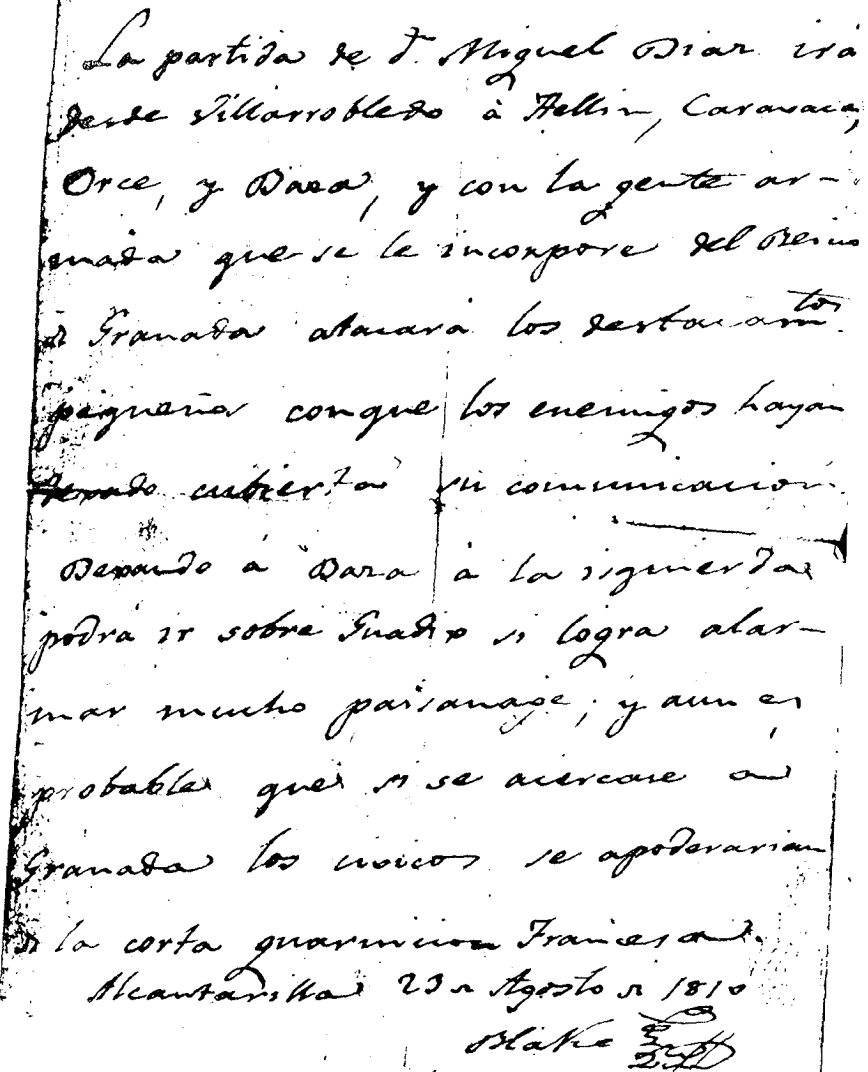 La partida de Dn. Miguel Diaz irá
desde Villarrobledo á Hellin, Caravaca,
Orce, y Baza, y con la gente ar-
mada que se le incorpore del Reino
de Granada atacará los destacamtos.
pequeños conque los enemigos hayan
dexado cubierta su comunicacion.
Dexando á Baza á la izquierda
podrá ir sobre Guadix si logra alar-
mar mucho paisanage; y aun es
probable que si se acercase á
Granada los civicos se apoderarian
de la corta guarnicion Francesa.
Alcantarilla 23 de Agosto de 1810
Blake